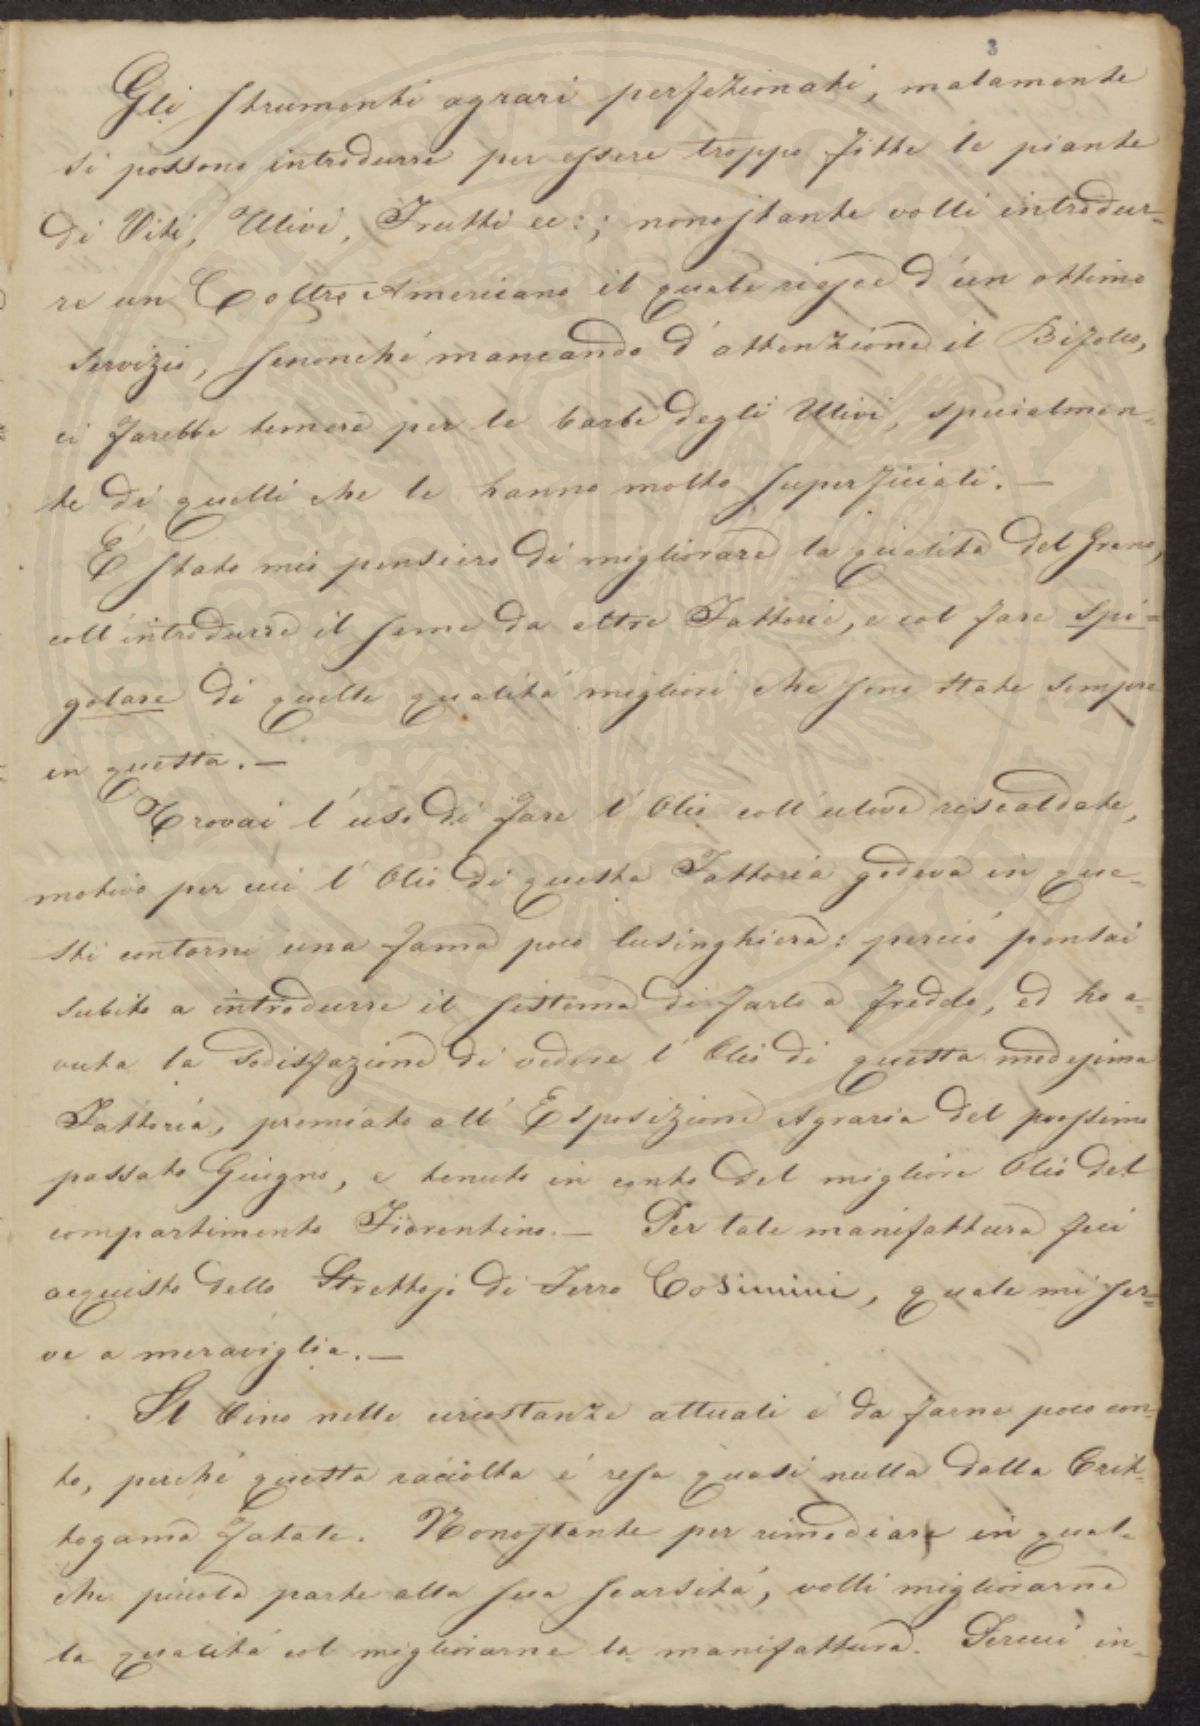 3
Gli strumenti agrari perfezionati, malamente
si possono introdurre per essere troppo fitte le piante
di Viti, Ulivi, Frutti ec:; nonostante volli introdur=
re un Coltro Americano il quale riesce d'un ottimo
servizio, senonché mancando d'attenzione il Bifolco,
ci farebbe temere per le barbe degli Ulivi, specialmen=
te di quelli che le hanno molto superficiali.—
É stato mio pensiero di migliorare la qualità del Grano,
coll'introdurre il seme da altre Fattorie, e col fare spi=
golare di quelle qualità migliori che sono state sempre
in questa.—
Trovai l'uso di fare l'Olio coll'ulive riscaldate,
motivo per cui l'Olio di questa Fattoria godeva in que=
sti contorni una fama poco lusinghiera: perciò pensai
subito a introdurre il sistema di farlo a freddo, ed ho a=
vuta la sodisfazione di vedere l'Olio di questa medesima
Fattoria, premiato all'Esposizione Agraria del prossimo
passato Giugno, e tenuto in conto del migliore Olio del
compartimento Fiorentino.— Per tale manifattura feci
acquisto dello Strettojo di Ferro Cosimini, quale mi ser=
ve a meraviglia.—
Il Vino nelle circostanze attuali é da farne poco con=
to, perché questa raccolta é resa quasi nulla dalla Crit=
togama fatale. Nonostante per rimediare in qual=
che piccola parte alla sua scarsità, volli migliorarne
la qualità col migliorarne la manifattura. Percui in=